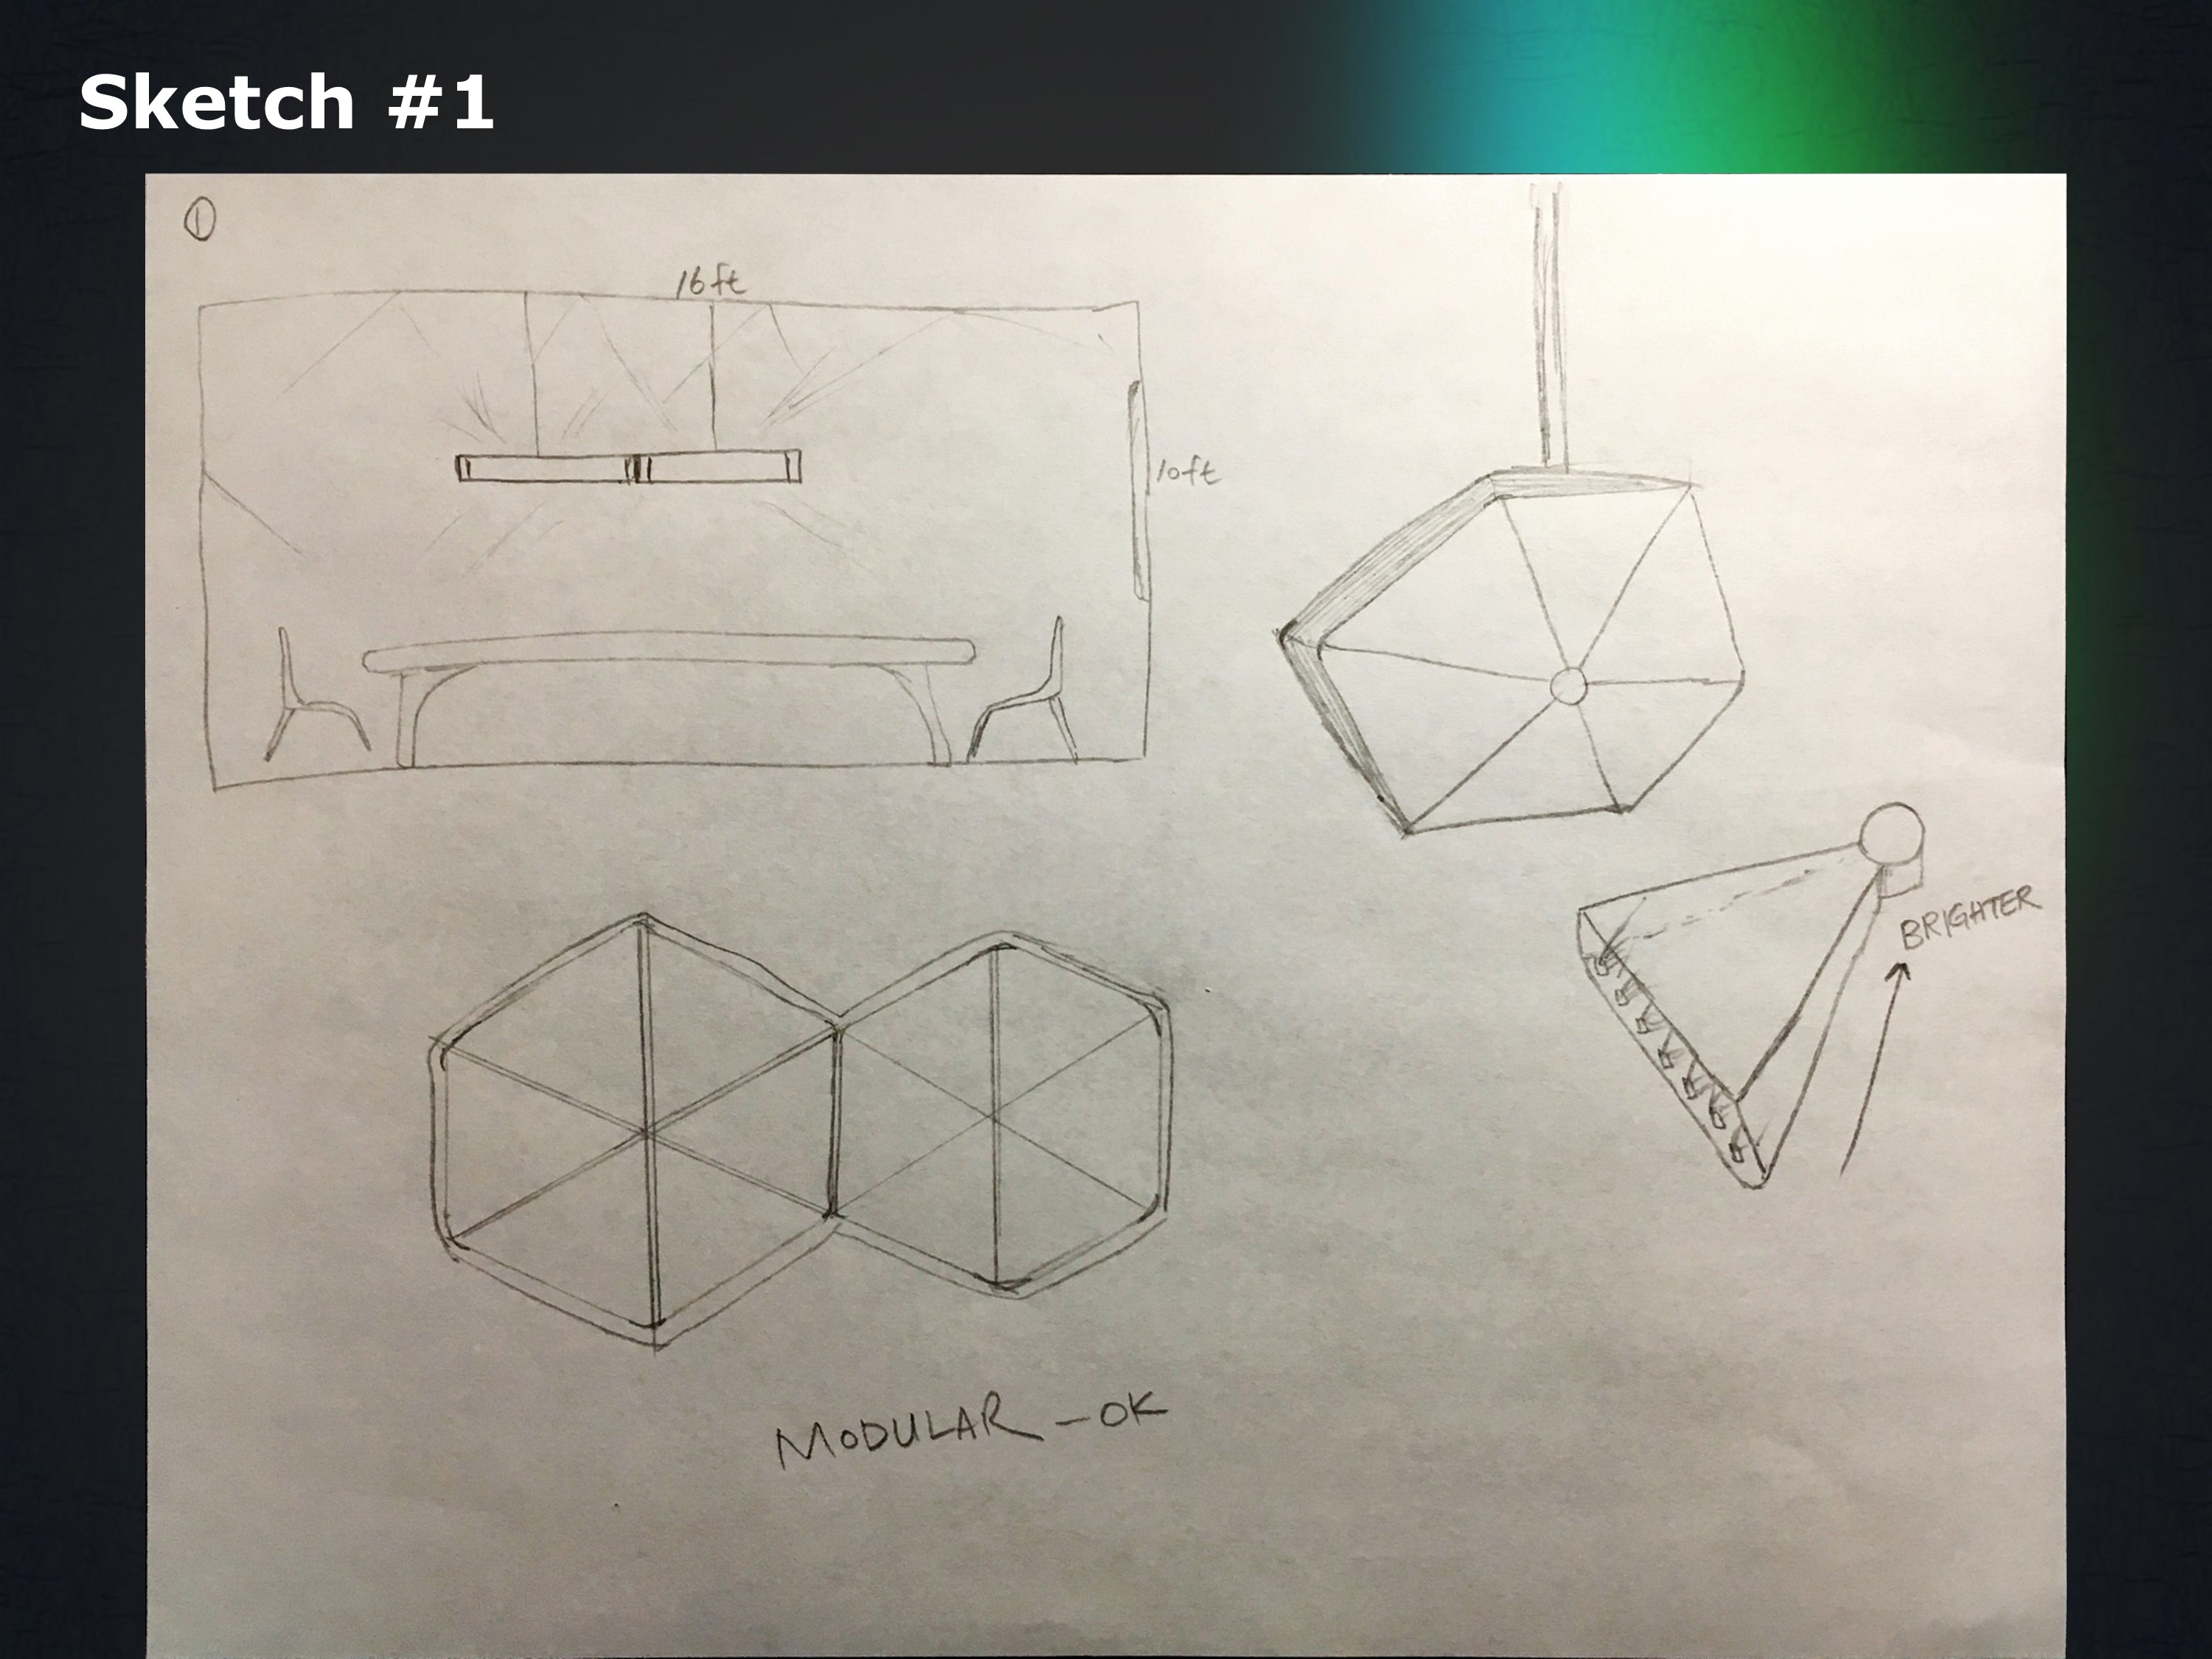 Sketch #1
1
16ft
10ft
BRIGHTER
MODULAR - OK